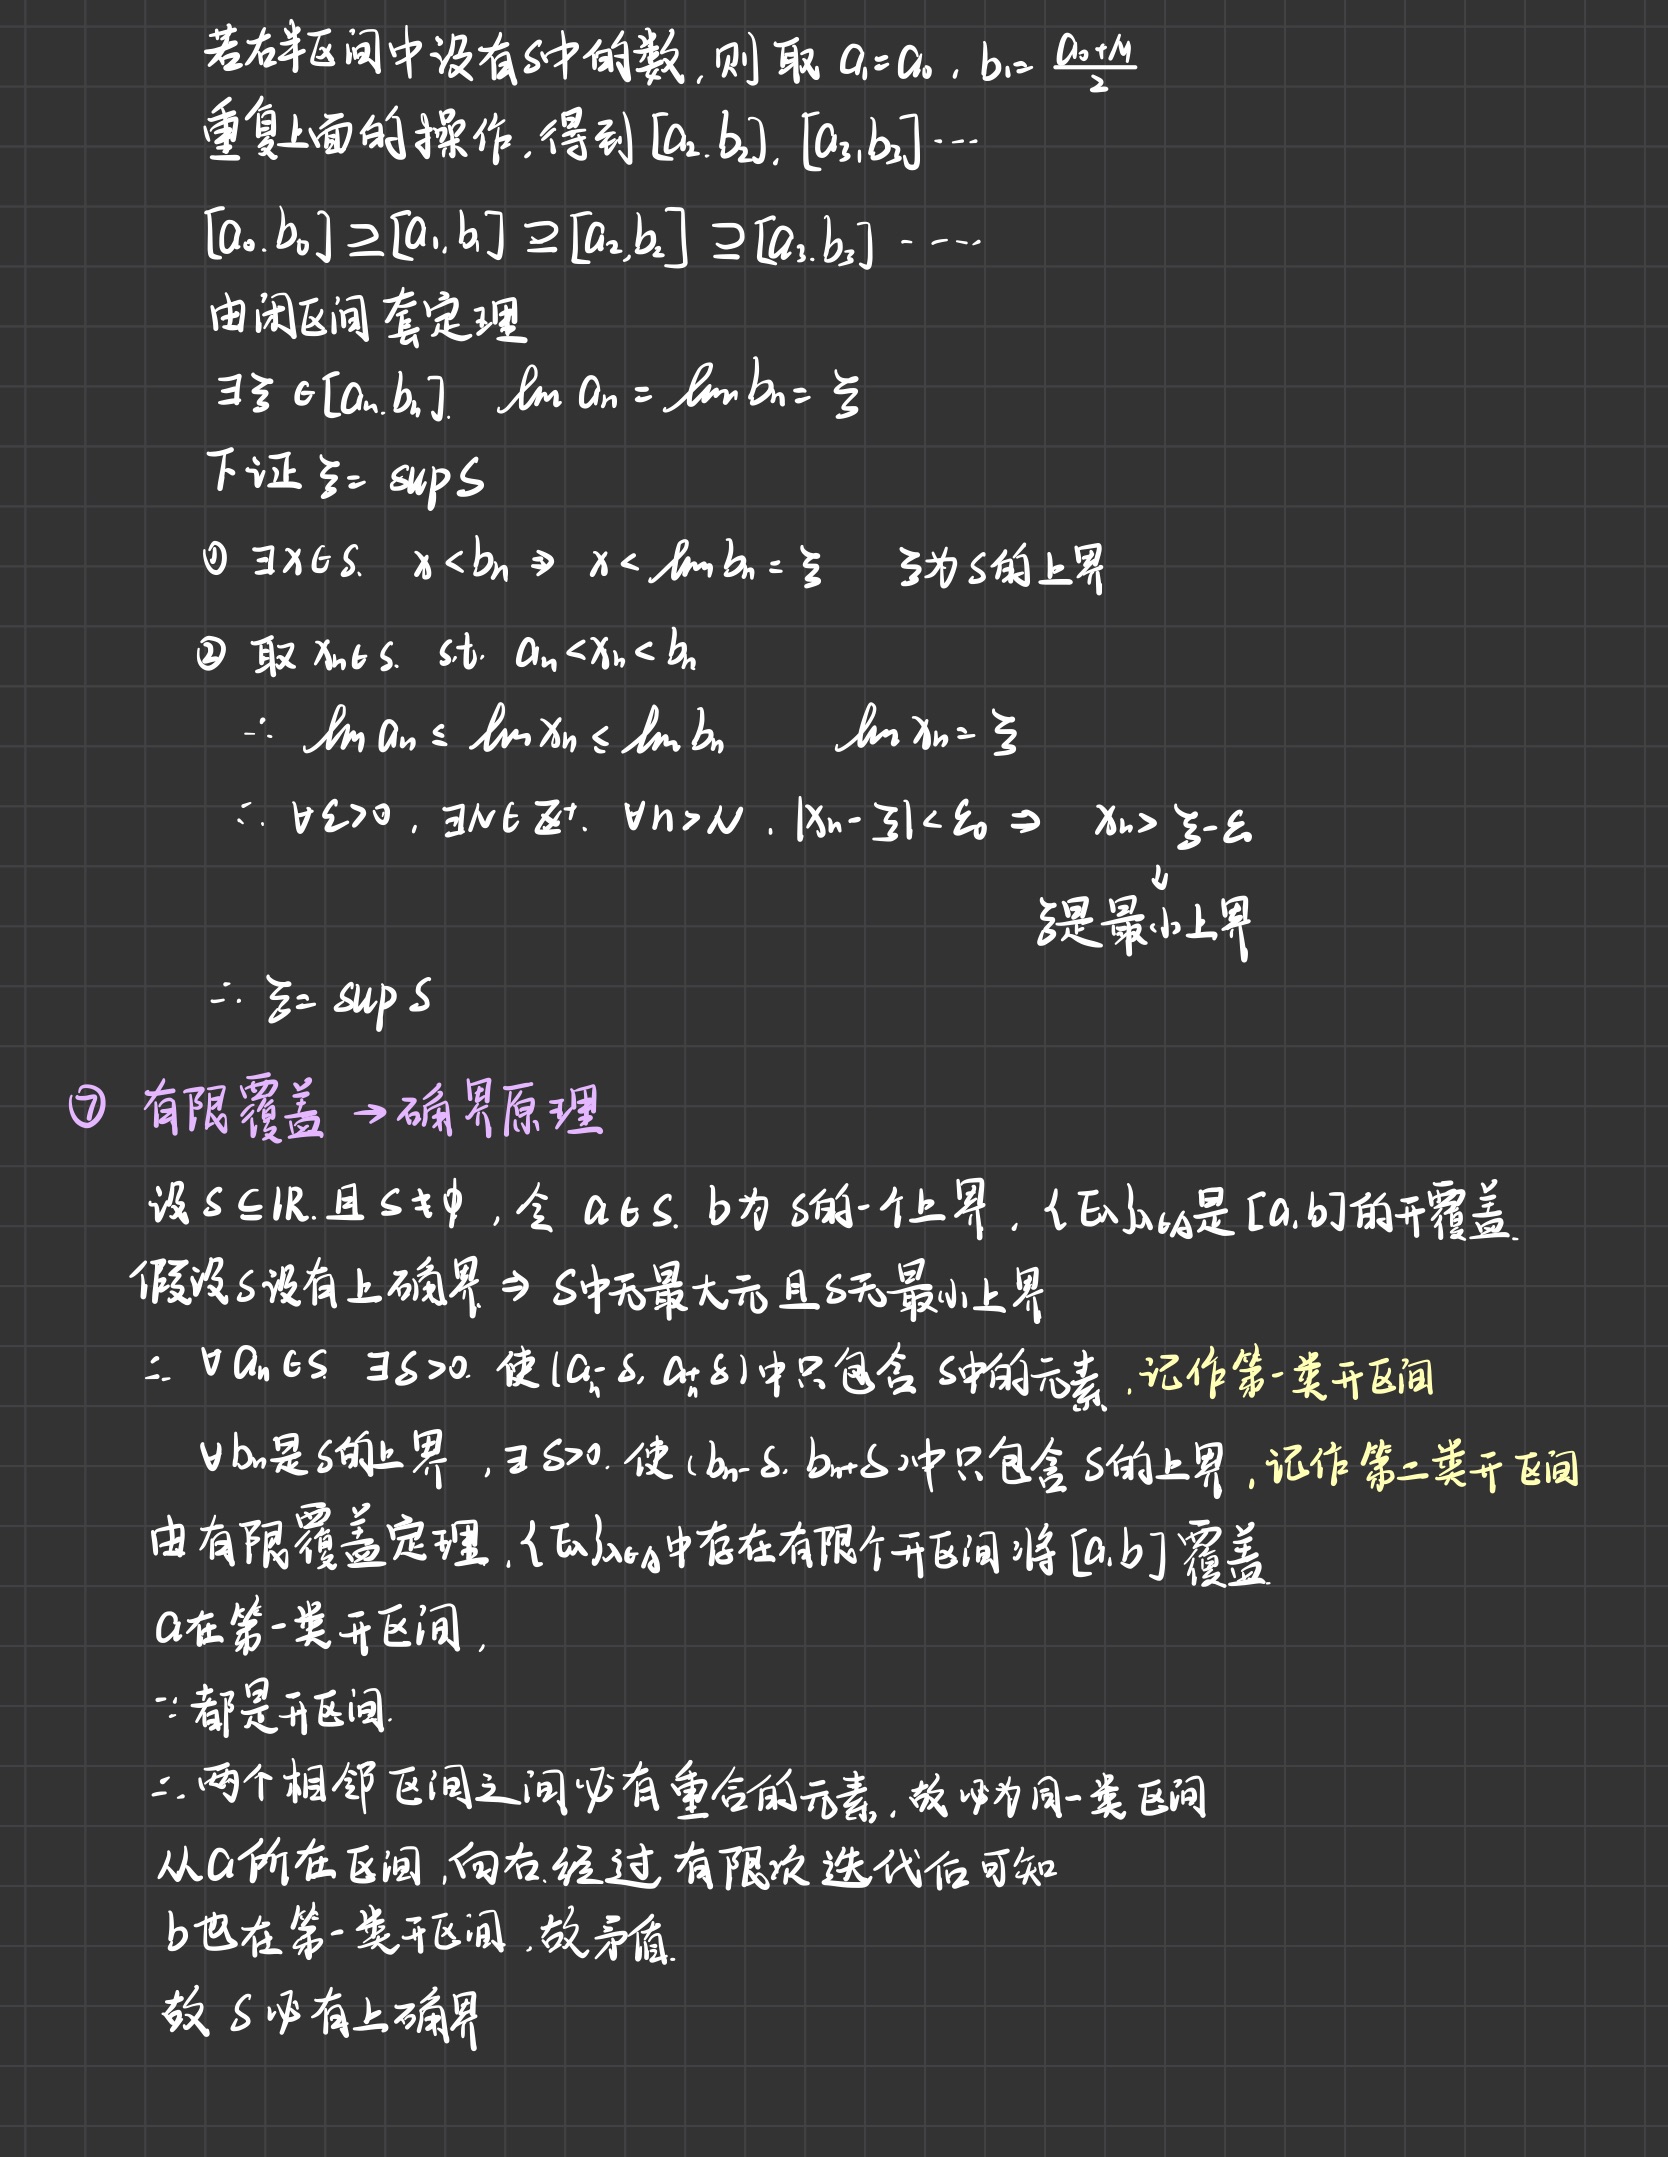 若右半区间中没有S中的数,则取 a₁=a₀, b₁= (a₀+M)/2
重复上面的操作,得到[a₂,b₂],[a₃,b₃]…
[a₀,b₀]⊇[a₁,b₁]⊇[a₂,b₂]⊇[a₃,b₃]……
由闭区间套定理
∃ξ∈[aₙ,bₙ]. lim aₙ = lim bₙ = ξ
下证 ξ= sup S
① ∃x∈S. x<bₙ ⇒ x< lim bₙ = ξ ξ为S的上界
② 取 xₙ∈S. s.t. aₙ<xₙ<bₙ
∴ lim aₙ ≤ lim xₙ ≤ lim bₙ lim xₙ= ξ
∴ ∀ε>0, ∃N∈Z⁺. ∀n>N, |xₙ-ξ|<ε₀ ⇒ xₙ> ξ-ε₀
⇓
ξ是最小上界
∴ ξ= sup S
⑦ 有限覆盖→确界原理
设S⊆ℝ.且S≠ϕ,令 a∈S. b为S的一个上界,{E_λ}_{λ∈A}是[a,b]的开覆盖.
假设S没有上确界⇒S中无最大元且S无最小上界
∴ ∀aₙ∈S ∃δ>0. 使(aₙ-δ, aₙ+δ)中只包含S中的元素,记作第一类开区间
∀bₙ是S的上界,∃δ>0.使(bₙ-δ, bₙ+δ)中只包含S的上界,记作第二类开区间
由有限覆盖定理,{E_λ}_{λ∈A}中存在有限个开区间将[a,b]覆盖.
a在第一类开区间,
∵都是开区间.
∴两个相邻区间之间必有重合的元素,故必为同一类区间
从a所在区间,向右经过有限次迭代后可知
b也在第一类开区间,故矛盾.
故S必有上确界